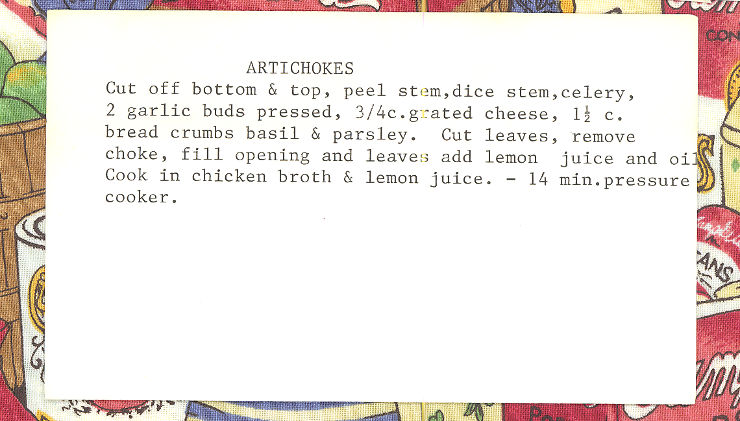 ARTICHOKES
Cut off bottom & top, peel stem,dice stem,celery,
2 garlic buds pressed, 3/4c.grated cheese, 1½ c.
bread crumbs basil & parsley.  Cut leaves, remove
choke, fill opening and leaves add lemon  juice and oil
Cook in chicken broth & lemon juice. - 14 min.pressure
cooker.
CON
Campbell's
ANS